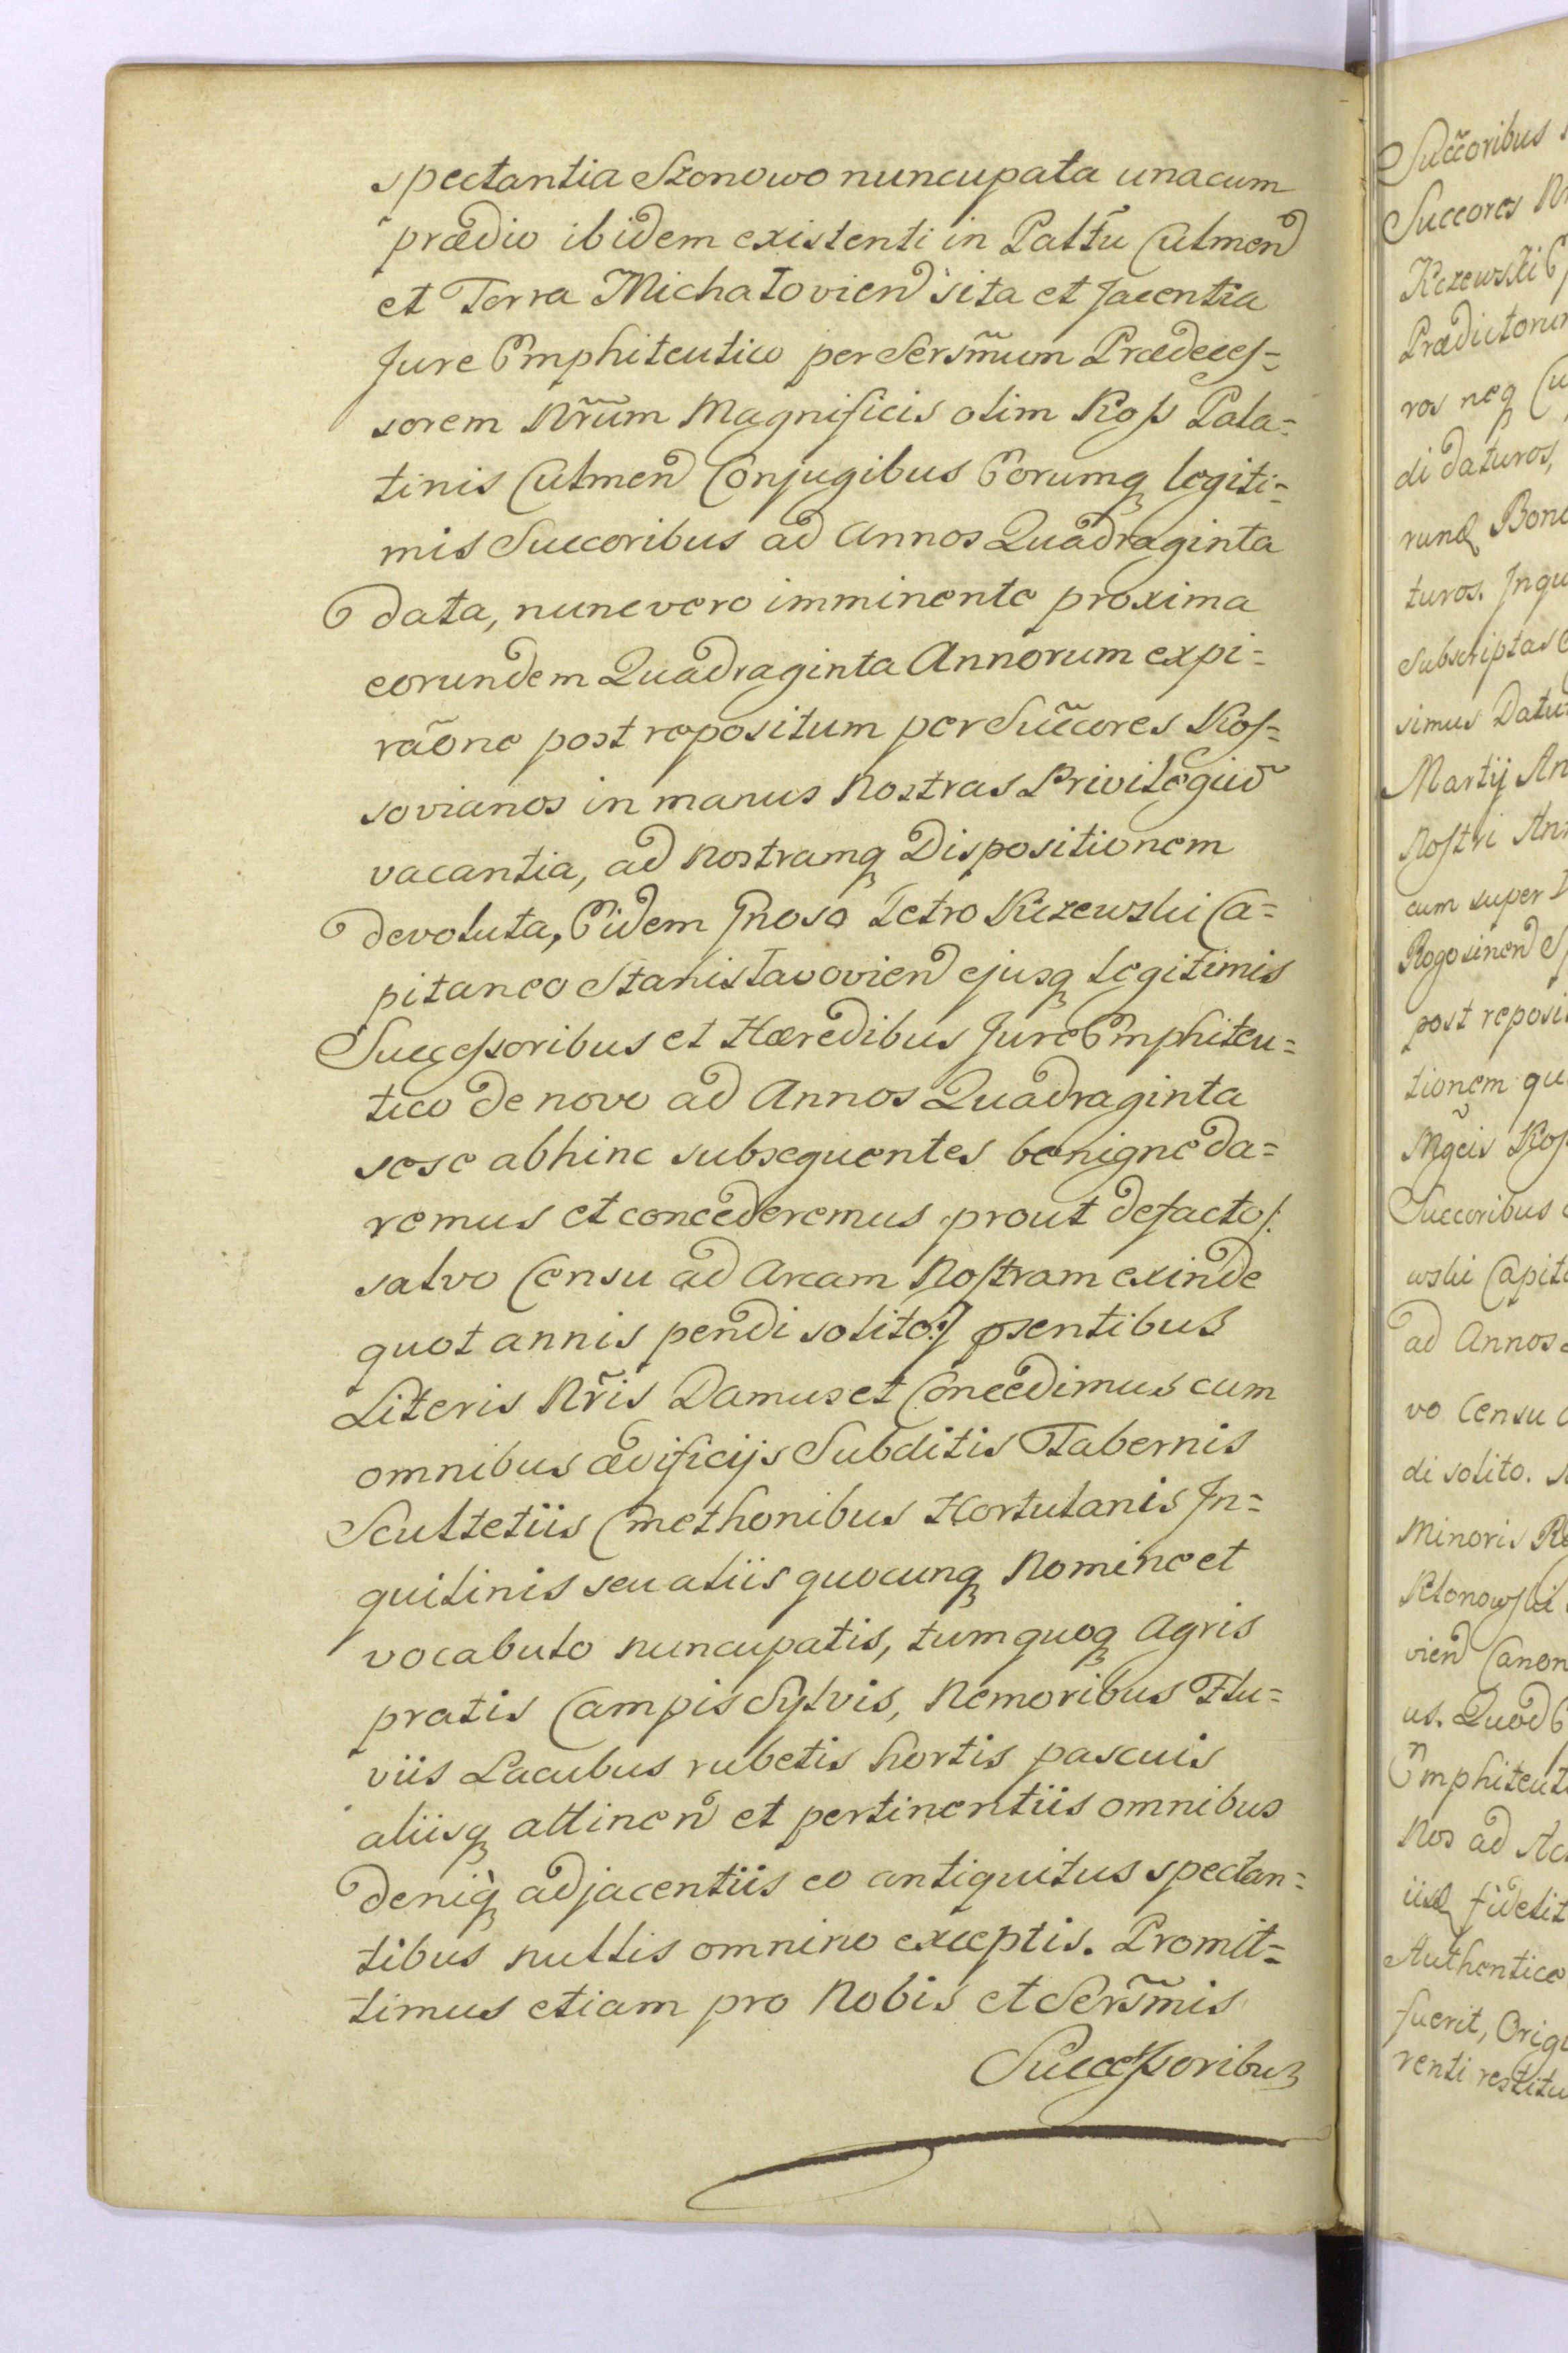 spectantia Szonowo nuncupata unacum
prædio ibidem existenti in Palt̃u Culmen̄
et Terra Michałovien̄ sita et jacentia
Jure Emphiteutico per Sersm̃um Prædeces=
sorem Nr̃um Magnificis olim Koſs Pala=
tinis Culmen̄ Conjugibus Eorumq̨ legiti=
mis Succoribus ad Annos Quadraginta
data, nunc vero imminente proxima
eorundem Quadraginta Annorum expi=
rãone post repositum per Suc̃cores Koſ=
sovianos in manus Nostras Privilegiũ
vacantia, ad Nostramq̨ Dispositionem
devoluta, Eidem Gnoso Petro Kczewski Ca=
pitaneo Stanisławovien̄ ejusq̨ legitimis
Succeſsoribus et Hæredibus Jure Emphiteu=
tico de novo ad Annos Quadraginta
sese abhinc subsequentes benigne da=
remus et concederemus prout defacto/:
salvo Censu ad Arcam Noſtram exinde
quot annis pendi solito:/ p̄sentibus
Literis Nr̃is Damus et Concedimus cum
omnibus ædificijs Subditis Tabernis
Scultetiis Cmethonibus Hortulanis In=
quilinis seu aliis quocunq̨ Nomine et
vocabulo nuncupatis, tum quoq̨ Agris
pratis Campis Sylvis, Nemoribus Flu=
viis Lacubus rubetis hortis pascuis
aliisq̨ attinen̄ et pertinentiis omnibus
deniq̨̀ adjacentiis eo antiquitus spectan=
tibus nullis omnino exceptis. Promit=
timus etiam pro Nobis et Sersm̃is
Succeſsoribus
Suc̃coribus
Succores
Kczewski
Prædictorum
ros neq̨
di daturos,
rund
turos.
Subscriptas
simus
Martij
Noſtri
cum super
Rogosinen̄
post
tionem
Mg̃cis
Succoribus
wski
ad Annos
vo Censu
di solito.
Minoris
Klonowſki
vien̄
us. Quod
Nos ad
Authentice
fuerit,
renti